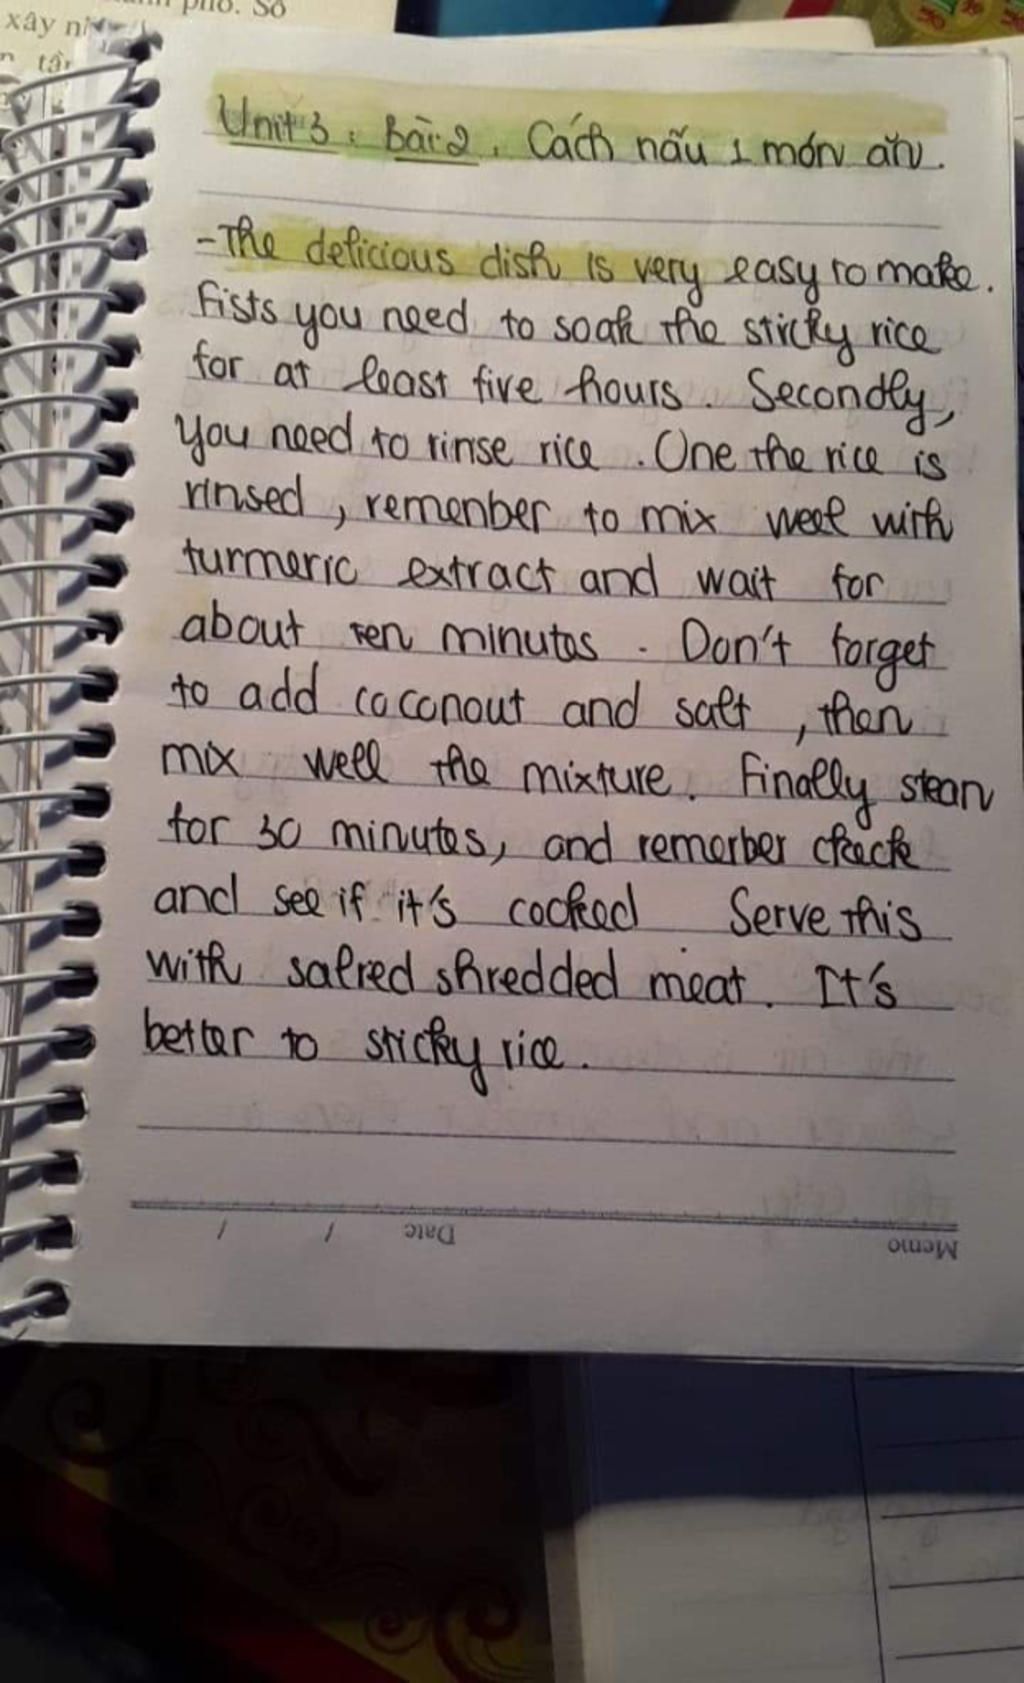 phố. Số
xây
Unit 3 : Bài 2. Cách nấu 1 món ăn.
-The delicious dish is very easy to make.
Fists you need to soak the sticky rice
for at least five hours. Secondly,
you need to rinse rice. One the rice is
rinsed, remenber to mix well with
turmeric extract and wait for
about ten minutes. Don't forget
to add coconout and salt, then
mix well the mixture. Finally stean
for 30 minutes, and remerber check
and see if it's cooked Serve this
with salted shredded meat. It's
better to sticky rice.
Memo Date / /